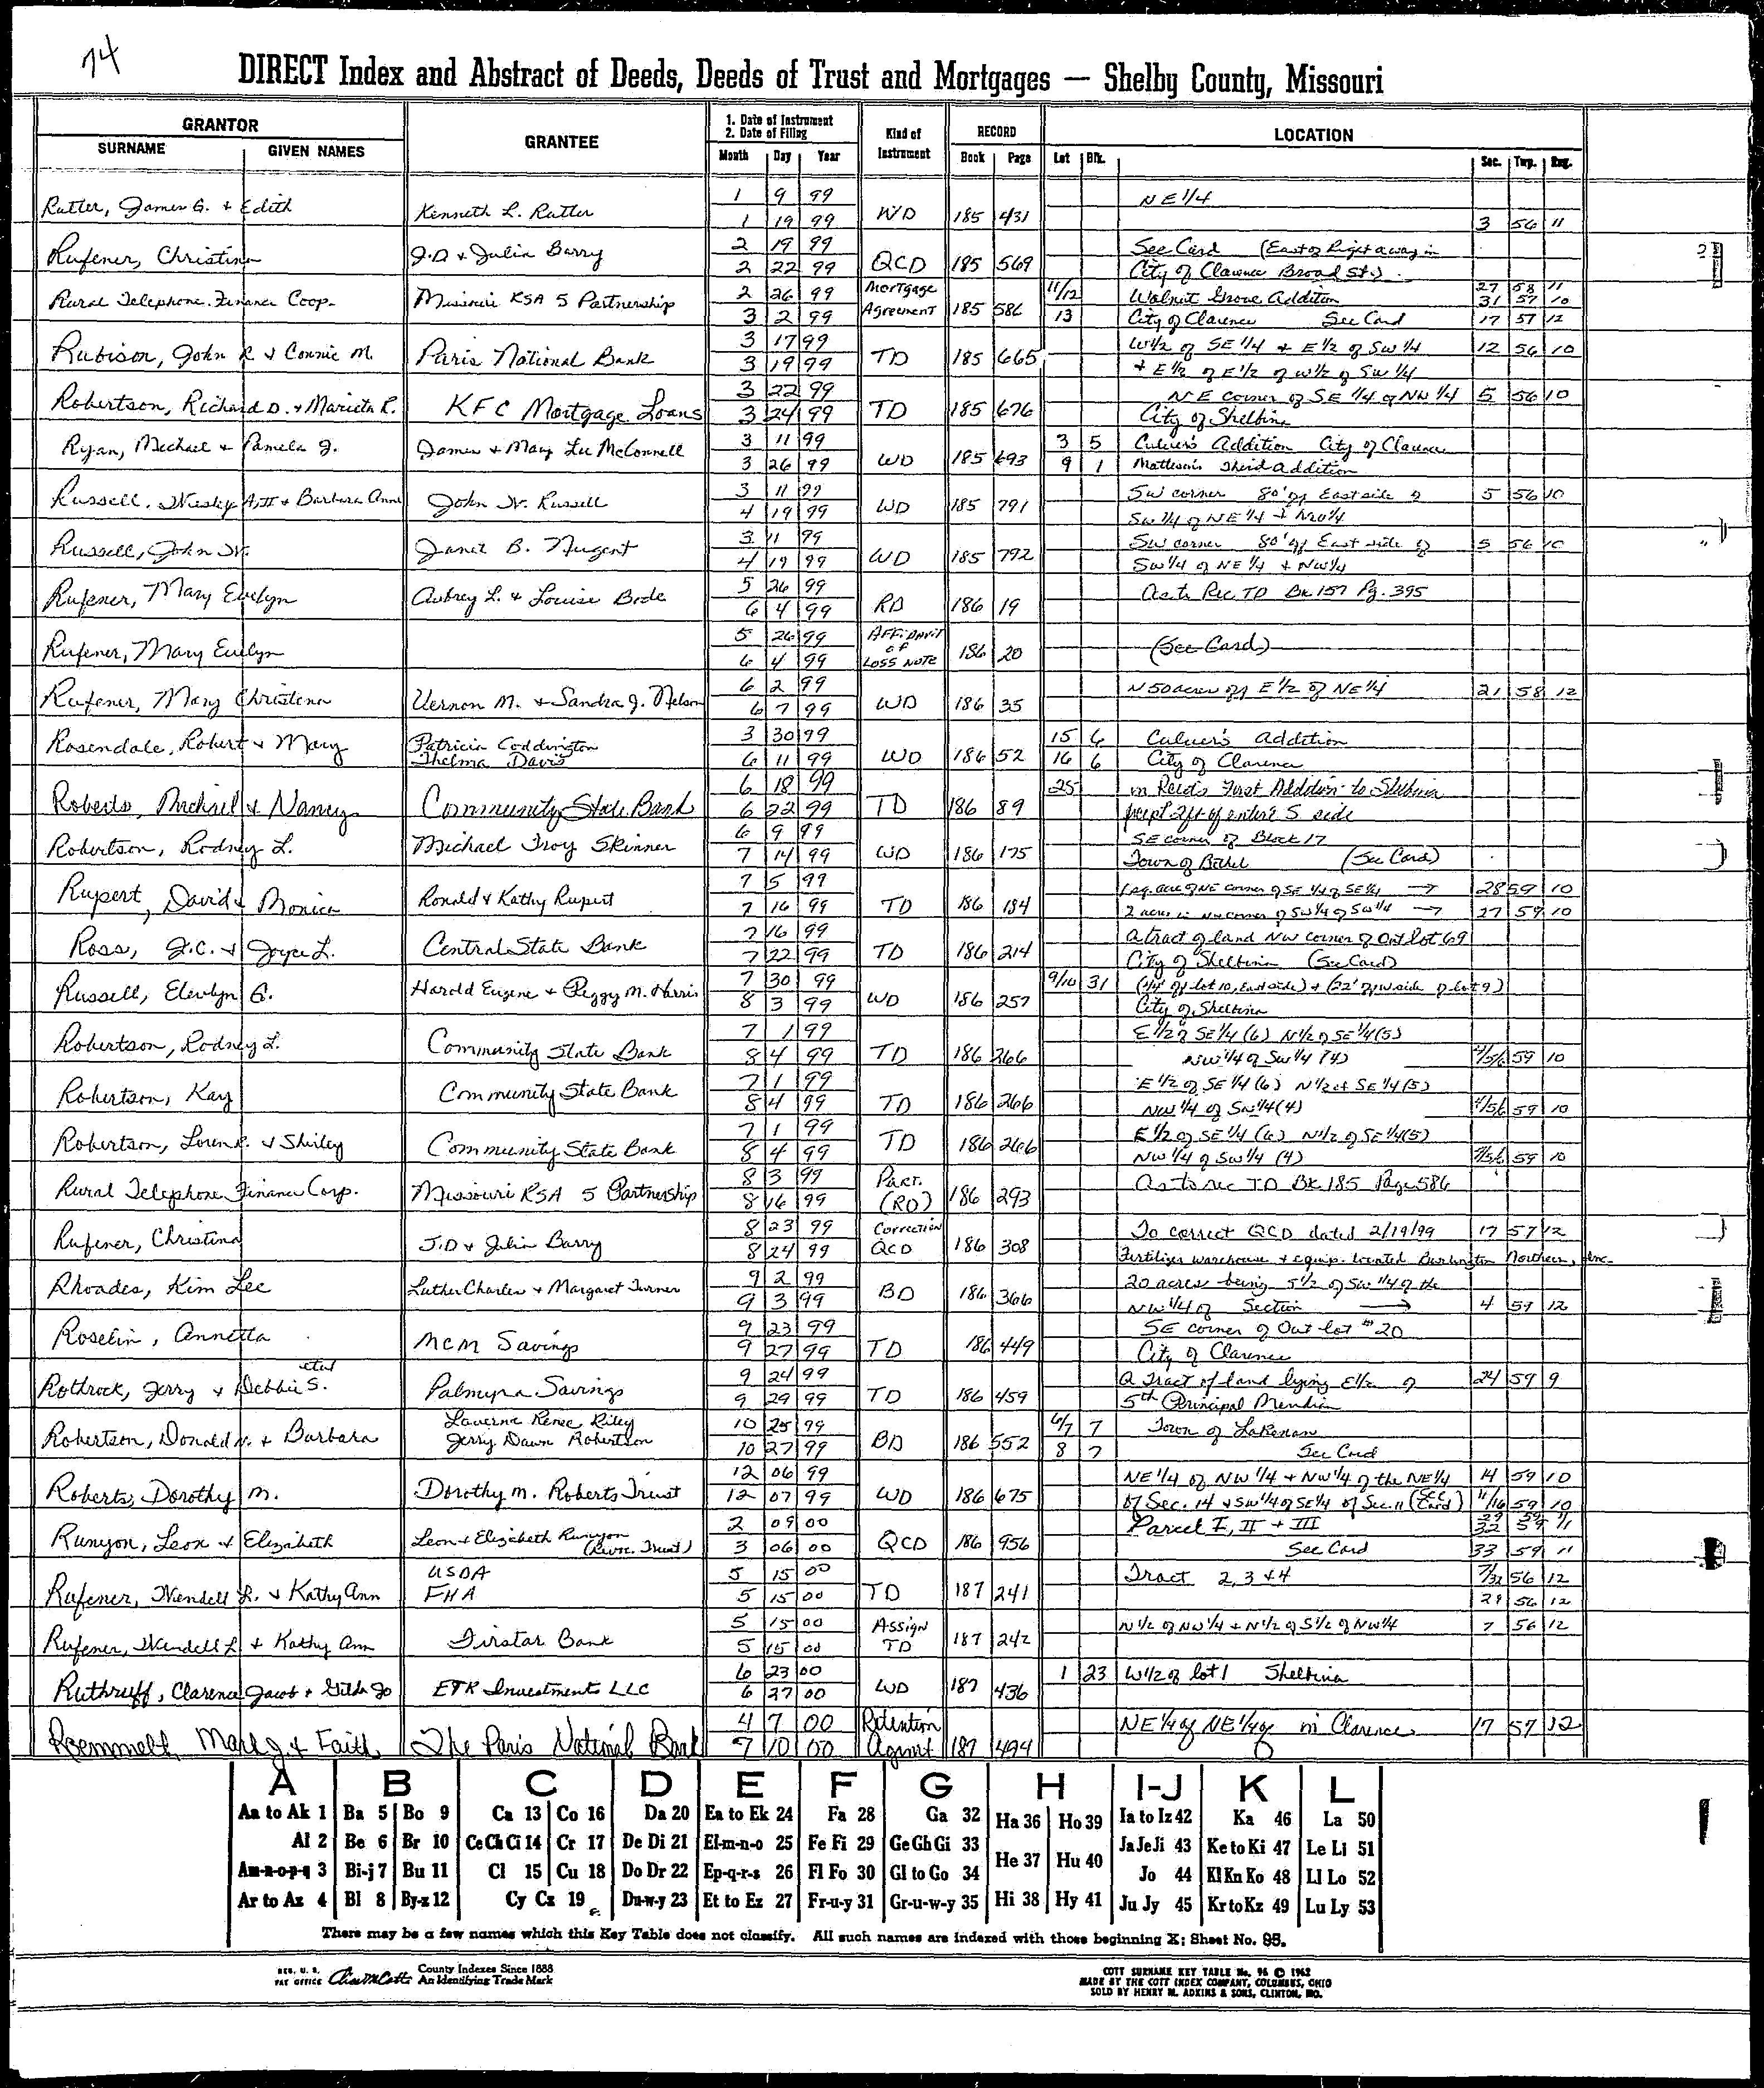 74
DIRECT Index and Abstract of Deeds, Deeds of Trust and Mortgages — Shelby County, Missouri
GRANTOR
SURNAME GIVEN NAMES GRANTEE 1. Date of Instrument 2. Date of Filing Month Day Year Kind of Instrument RECORD Book Page Lot Blk. LOCATION Sec. Twp. Rng.
Rutter, James G. + Edith Kenneth L. Rutter 1 9 99 WD 185 431 NE 1/4
1 19 99 3 56 11
Rufener, Christina J.D + Julia Barry 2 19 99 QCD 185 569 See Card (East of Right away in
2 22 99 City of Clarence Broad St.)
Rural Telephone Finance Coop. Missouri RSA 5 Partnership 2 26 99 Mortgage Agreement 185 586 11/12 Walnut Grove Addition 27 58 11
31 57 10
3 2 99 13 City of Clarence See Card 17 57 12
Rubison, John R + Connie M. Paris National Bank 3 17 99 TD 185 665 W1/2 of SE 1/4 + E 1/2 of SW 1/4 12 56 10
3 19 99 + E 1/2 of E 1/2 of W 1/2 of SW 1/4
Robertson, Richard D. + Marieta R. KFC Mortgage Loans 3 22 99 TD 185 676 NE corner of SE 1/4 of NW 1/4 5 56 10
3 24 99 City of Shelbina
Ryan, Michael + Pamela J. James + Mary Lu McConnell 3 11 99 WD 185 693 3 5 Culver's Addition City of Clarence
3 26 99 9 1 Matteson's Third Addition
Russell, Wesley A, II + Barbara Anne John W. Russell 3 11 99 WD 185 791 SW corner 80' of East side of 5 56 10
4 19 99 SW 1/4 of NE 1/4 + NW 1/4
Russell, John W. Janet B. Nugent 3 11 99 WD 185 792 SW corner 80' of East side of 5 56 10
4 19 99 SW 1/4 of NE 1/4 + NW 1/4
Rufener, Mary Evelyn Aubrey L. + Louise Bode 5 26 99 RD 186 19 As to Rec TD Bk 157 Pg. 395
6 4 99
Rufener, Mary Evelyn 5 26 99 Affidavit of Loss Note 186 20 (See Card)
6 4 99
Rufener, Mary Christena Vernon M. + Sandra J. Nelson 6 2 99 WD 186 35 N 50 acres of E 1/2 of NE 1/4 21 58 12
6 7 99
Rosendale, Robert + Mary Patricia Coddington 3 30 99 WD 186 52 15 6 Culver's Addition
Thelma Davis 6 11 99 16 6 City of Clarence
Roberts, Michael + Nancy Community State Bank 6 18 99 TD 186 89 25 in Reid's First Addition to Shelbina
6 22 99 except 2ft of entire S side
Robertson, Rodney L. Michael Troy Skinner 6 9 99 WD 186 175 SE corner of Block 17
7 14 99 Town of Bethel (See Card)
Rupert, David + Monica Ronald + Kathy Rupert 7 5 99 TD 186 184 1 sq. acre of NE corner of SE 1/4 of SE 1/4 → 28 59 10
7 16 99 2 acres in NW corner of SW 1/4 of SW 1/4 → 27 59 10
Ross, J.C. + Joyce L. Central State Bank 7 16 99 TD 186 214 A tract of land NW corner of Out lot 69
7 22 99 City of Shelbina (See Card)
Russell, Elevlyn G. Harold Eugene + Peggy M. Harris 7 30 99 WD 186 257 9/10 31 (44' of lot 10, East side) + (22' of W side of lot 9)
8 3 99 City of Shelbina
Robertson, Rodney L. Community State Bank 7 1 99 TD 186 266 E 1/2 of SE 1/4 (6) N 1/2 of SE 1/4 (5)
8 4 99 NW 1/4 of SW 1/4 (4) 4/5/6 59 10
Robertson, Kay Community State Bank 7 1 99 TD 186 266 E 1/2 of SE 1/4 (6) N 1/2 of SE 1/4 (5)
8 4 99 NW 1/4 of SW 1/4 (4) 4/5/6 59 10
Robertson, Loren R. + Shirley Community State Bank 7 1 99 TD 186 266 E 1/2 of SE 1/4 (6) N 1/2 of SE 1/4 (5)
8 4 99 NW 1/4 of SW 1/4 (4) 4/5/6 59 10
Rural Telephone Finance Corp. Missouri RSA 5 Partnership 8 3 99 Part. (RD) 186 293 As to rec TD Bk. 185 Page 586
8 16 99
Rufener, Christina J.D + Julia Barry 8 23 99 Correction QCD 186 308 To correct QCD dated 2/19/99 17 57 12
8 24 99 Fertilizer warehouse + equip. located Burlington Northern, Inc.
Rhoades, Kim Lee Luther Charles + Margaret Turner 9 2 99 BD 186 366 20 acres being S 1/2 of SW 1/4 of the
9 3 99 NW 1/4 of Section → 4 59 12
Roselin, Annetta MCM Savings 9 23 99 TD 186 449 SE corner of Out lot # 20
9 27 99 City of Clarence
Rothrock, Jerry + Debbie S. etal Palmyra Savings 9 24 99 TD 186 459 A Tract of land lying E 1/2 of 24 59 9
9 29 99 5th Principal Meridian
Robertson, Donald N. + Barbara Laverne Renee Riley 10 25 99 BD 186 552 6/7 7 Town of Lakenan
Jerry Dawn Robertson 10 27 99 8 7 See Card
Roberts, Dorothy M. Dorothy M. Roberts Trust 12 06 99 WD 186 675 NE 1/4 of NW 1/4 + NW 1/4 of the NE 1/4 14 59 10
12 07 99 of Sec. 14 + SW 1/4 of SE 1/4 of Sec. 11 (See Card) 11/16 59 10
Runyon, Leon + Elizabeth Leon + Elizabeth Runyon (Revoc. Trust) 2 09 00 QCD 186 956 Parcel I, II + III 29 59 11
32 59 11
3 06 00 See Card 33 59 11
Rufener, Wendell L. + Kathy Ann USDA 5 15 00 TD 187 241 Tract 2, 3 + 4 7/32 56 12
FHA 5 15 00 29 56 12
Rufener, Wendell L + Kathy Ann Firstar Bank 5 15 00 Assign TD 187 242 N 1/2 of NW 1/4 + N 1/2 of S 1/2 of NW 1/4 7 56 12
5 15 00
Ruthruff, Clarence Jacob + Gilda Jo ETR Investments LLC 6 23 00 WD 187 436 1 23 W 1/2 of lot 1 Shelbina
6 27 00
Roemmelt, Mark J. + Faith The Paris National Bank 4 7 00 Retention Agmnt 187 494 NE 1/4 of NE 1/4 of in Clarence 17 57 12
7 10 00
A B C D E F G H I-J K L
Aa to Ak 1 Ba 5 Bo 9 Ca 13 Co 16 Da 20 Ea to Ek 24 Fa 28 Ga 32 Ha 36 Ho 39 Ia to Iz 42 Ka 46 La 50
Al 2 Be 6 Br 10 Ce Ch Ci 14 Cr 17 De Di 21 El-m-n-o 25 Fe Fi 29 Ge Gh Gi 33 He 37 Hu 40 Ja Je Ji 43 Ke to Ki 47 Le Li 51
Am-n-o-p-q 3 Bi-j 7 Bu 11 Cl 15 Cu 18 Do Dr 22 Ep-q-r-s 26 Fl Fo 30 Gl to Go 34 Jo 44 Kl Kn Ko 48 Ll Lo 52
Ar to Az 4 Bl 8 By-z 12 Cy Cz 19 Du-w-y 23 Et to Ez 27 Fr-u-y 31 Gr-u-w-y 35 Hi 38 Hy 41 Ju Jy 45 Kr to Kz 49 Lu Ly 53
There may be a few names which this Key Table does not classify. All such names are indexed with those beginning X; Sheet No. 95.
REG. U. S. PAT OFFICE County Indexes Since 1888 An Identifying Trade Mark
COTT SURNAME KEY TABLE No. 96 © 1962
MADE BY THE COTT INDEX COMPANY, COLUMBUS, OHIO
SOLD BY HENRY M. ADKINS & SONS, CLINTON, MO.